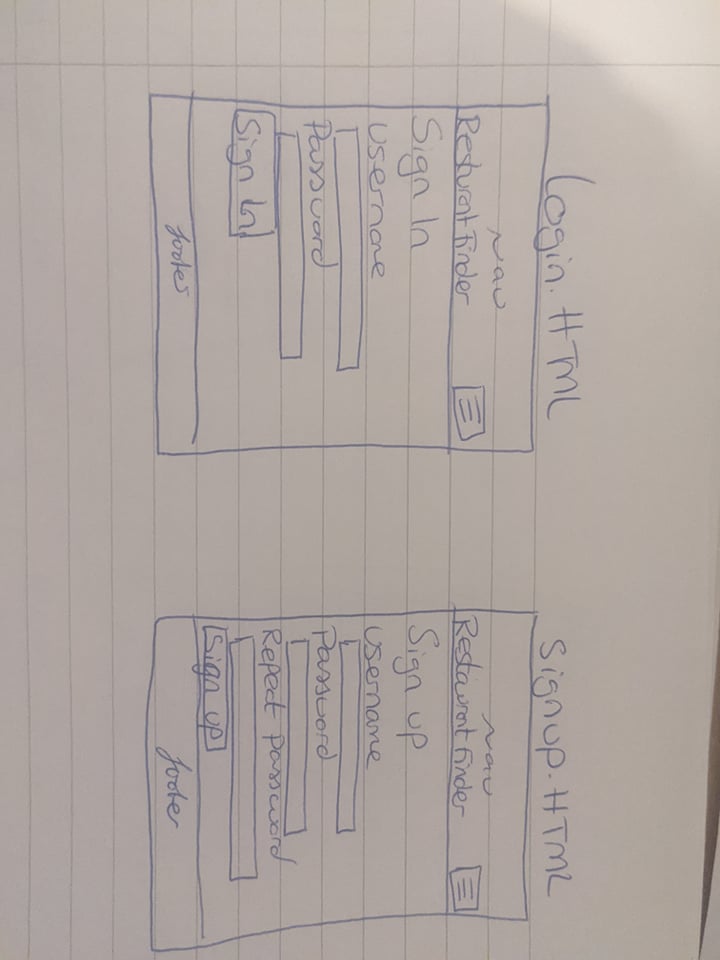 Login.HTML
Nav
Resturant Finder
Sign In
Username
Password
Sign In
footer
Signup.HTML
Nav
Restaurant Finder
Sign up
Username
Password
Repeat password
Sign up
footer